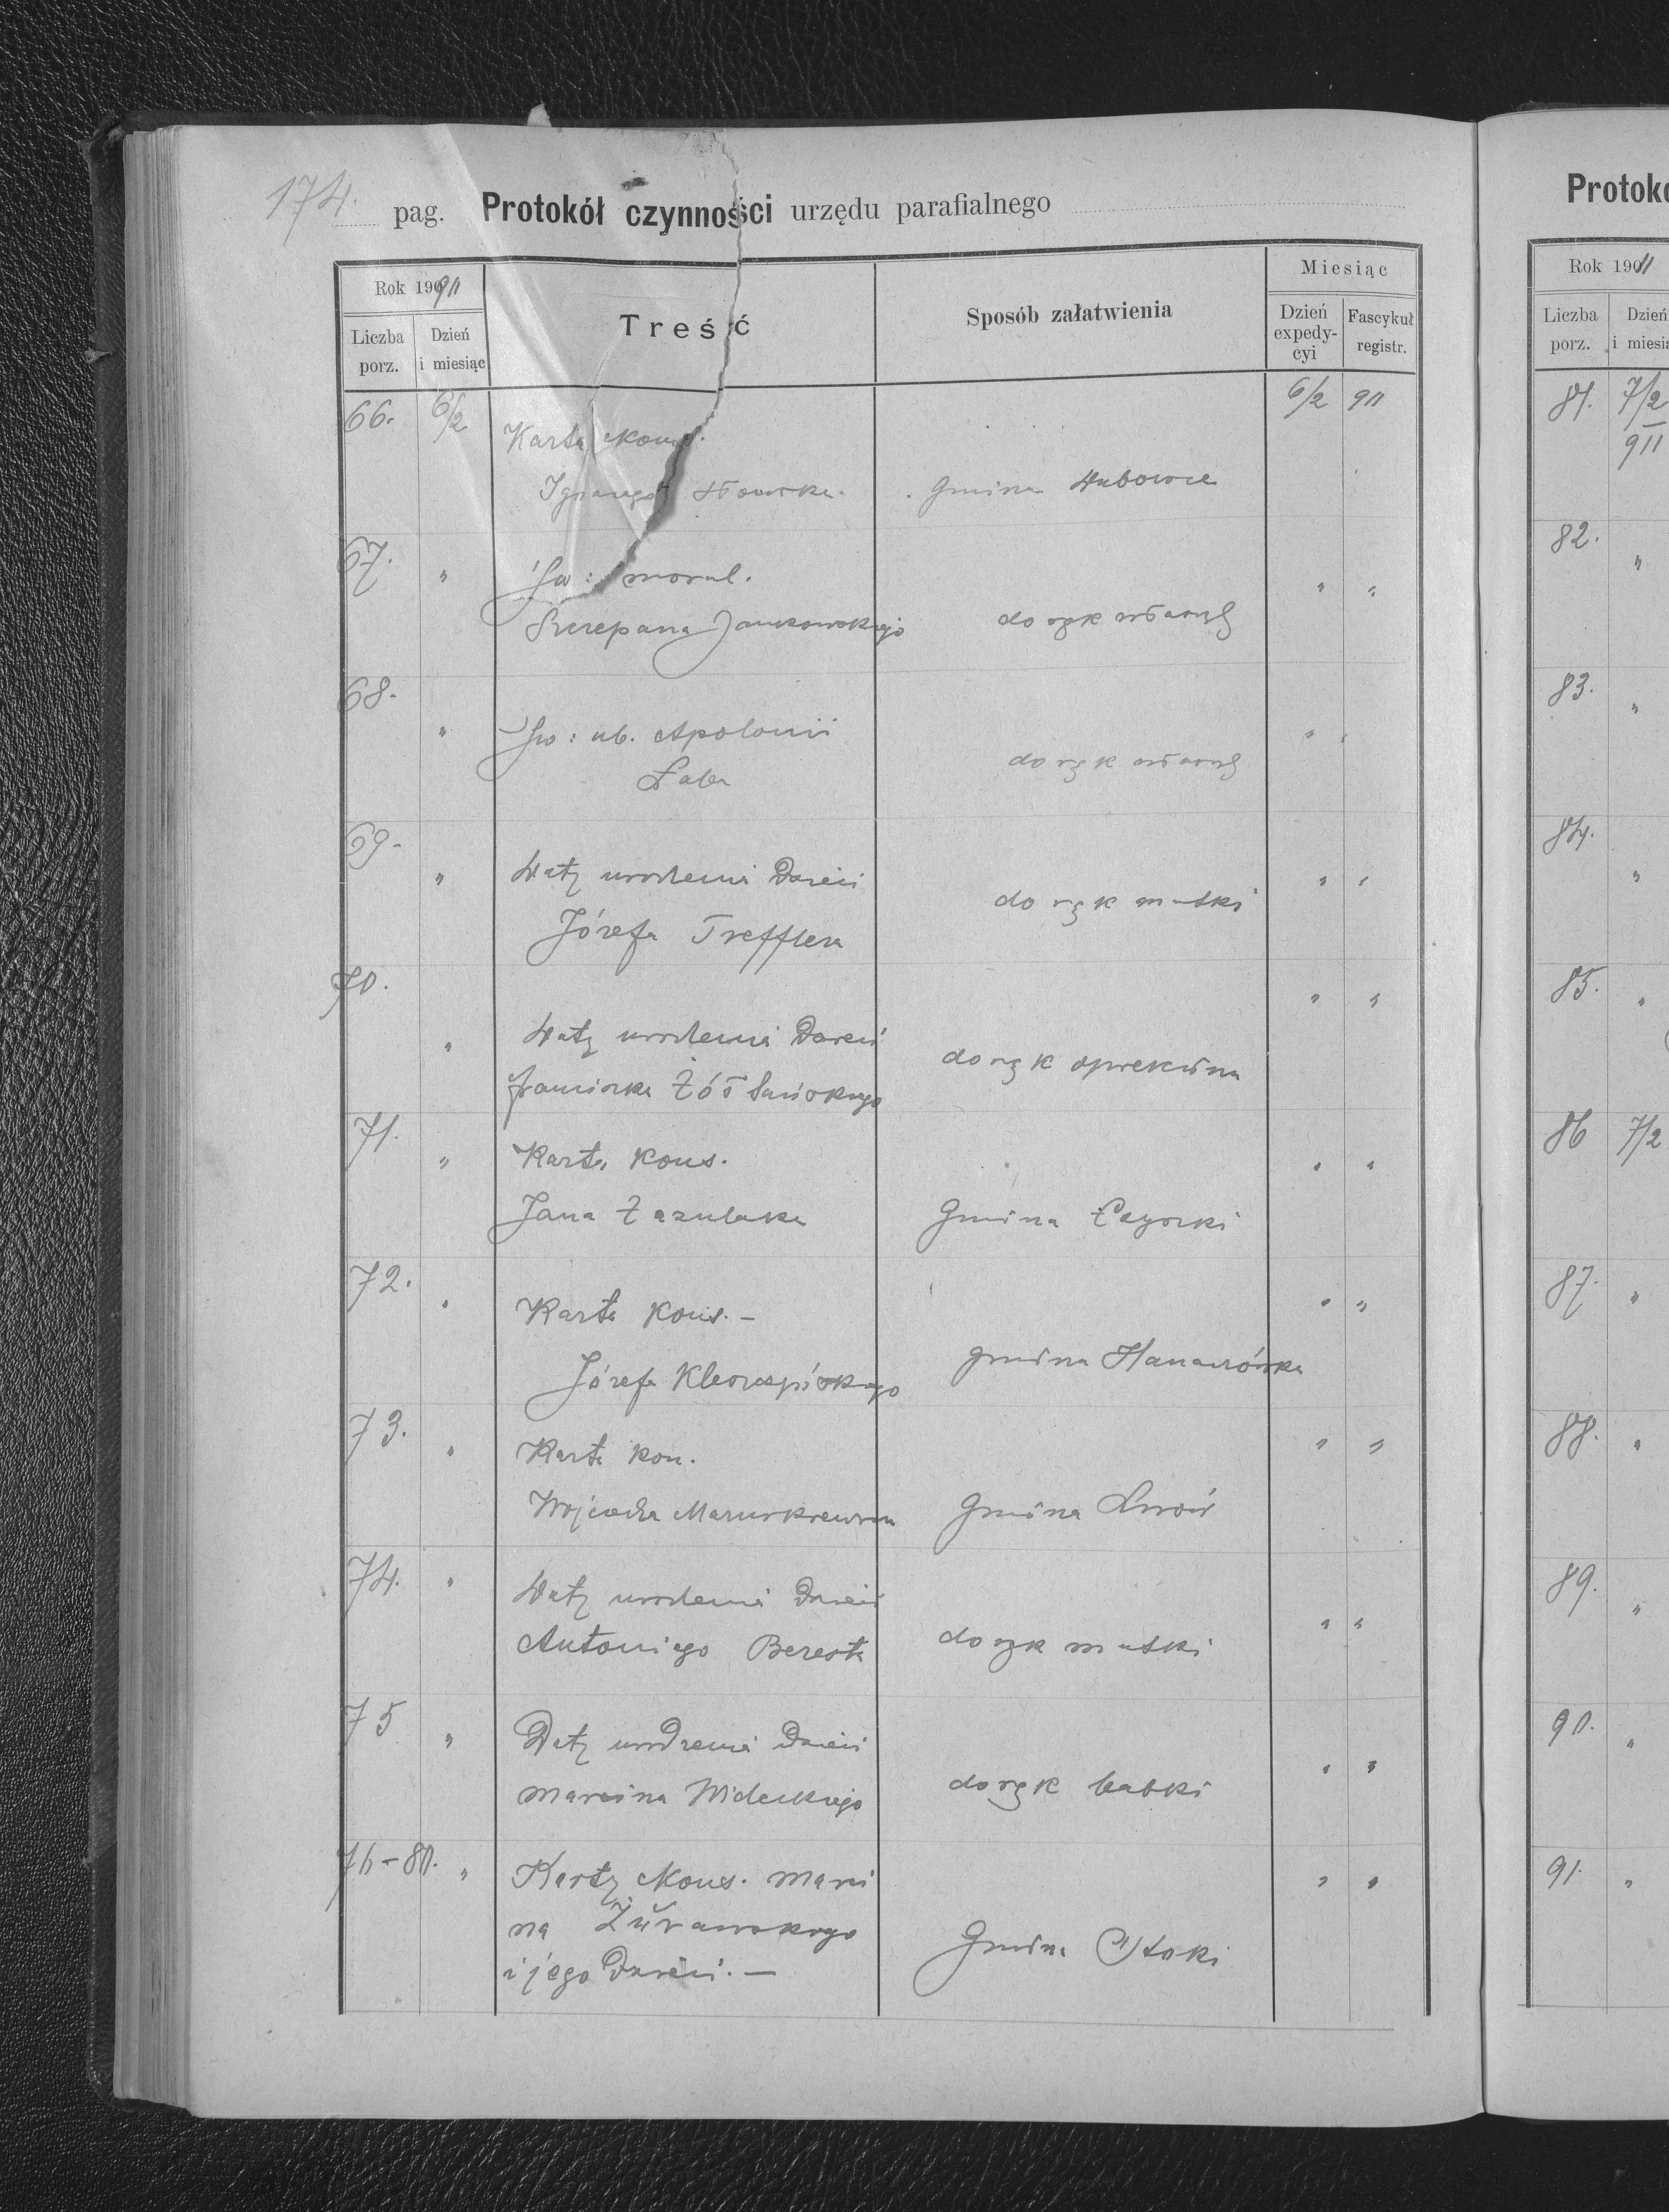 174. pag. Protokół czynności urzędu parafialnego
Rok 1911
Liczba porz.
Dzień i miesiąc
Treść
Sposób załatwienia
Miesiąc
Dzień expedy-
cyi
Fascykuł registr.
66. 6/2 Karta kons. 6/2 911
Ignacego Gmina Dubowce
67. " Św: moral. " "
Szczepana Jankowskiego do rąk własnych
68. " Św: ub. Apolonii " "
Łaba do rąk własnych
69. " Daty urodzenia Dzieci " "
Józefa Trefflera do rąk matki
70. " Daty urodzenia Dzieci " "
Franciszka Żółtańskiego do rąk opiekuna
71. " Karta kons. " "
Jana Zazulaka Gmina
72. " Karta kons. – " "
Józefa gmina Hanaczówka
73. " Karta kon. " "
Wojciecha Mazurkiewicza Gmina Lwów
74. " Daty urodzenia Dzieci " "
Antoniego Beresta do rąk matki
75 " Daty urodzenia Dzieci " "
Marcina Wideckiego do rąk babki
76–80. " Karty kons. Marci " "
na Żurawskiego
i jego Dzieci. – Gmina Stoki
Protokó
Rok 1911
Liczba porz.
Dzień
i miesią
81. 7/2
911
82. "
83. "
84. "
85. "
86 7/2
87. "
88. "
89. "
90. "
91. "